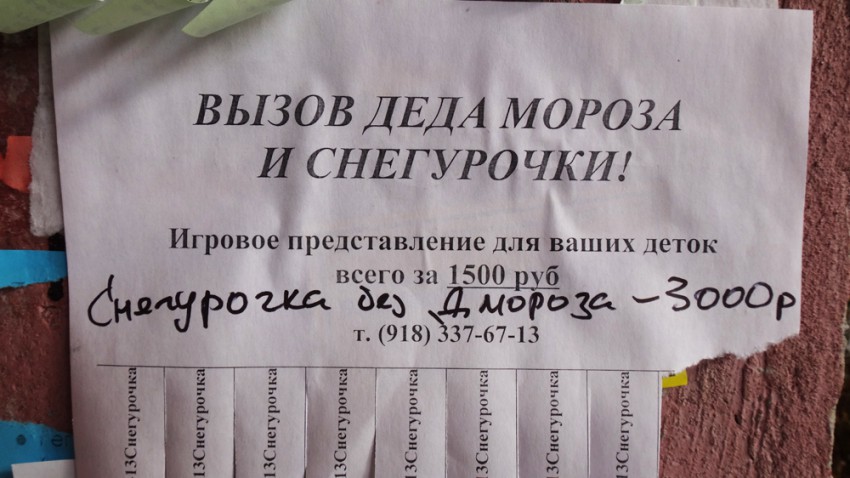 ВЫЗОВ ДЕДА МОРОЗА
И СНЕГУРОЧКИ!
Игровое представление для ваших деток
всего за 1500 руб
Снегурочка без Д мороза - 3000 р
т. (918) 337-67-13
13Снегурочка
13Снегурочка
13Снегурочка
13Снегурочка
13Снегурочка
13Снегурочка
13Снегурочка
13Снегурочка